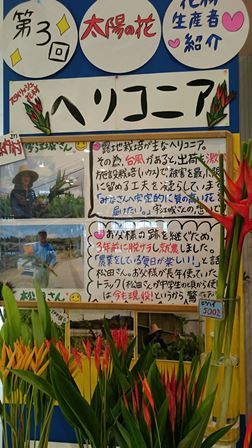 第3回
太陽の花
花材
生産者
紹介
ヘリコニア
宇江城さん
露地栽培が主なヘリコニア。
その為、台風があると出荷を激
施設栽培(ハウス)で被害を最小限
に留める工夫を凝らしています
「みなさんへ安定的に質の高い花
届けたい。」宇江城さんの想い
お母様の跡を継ぐため、
3年前に脱サラし就農しました。
「農業をしている毎日が楽しい!」と話
松田さん。お母様が長年使っていた
トラック(松田さんが中学生の頃から使
は今も現役!というから驚